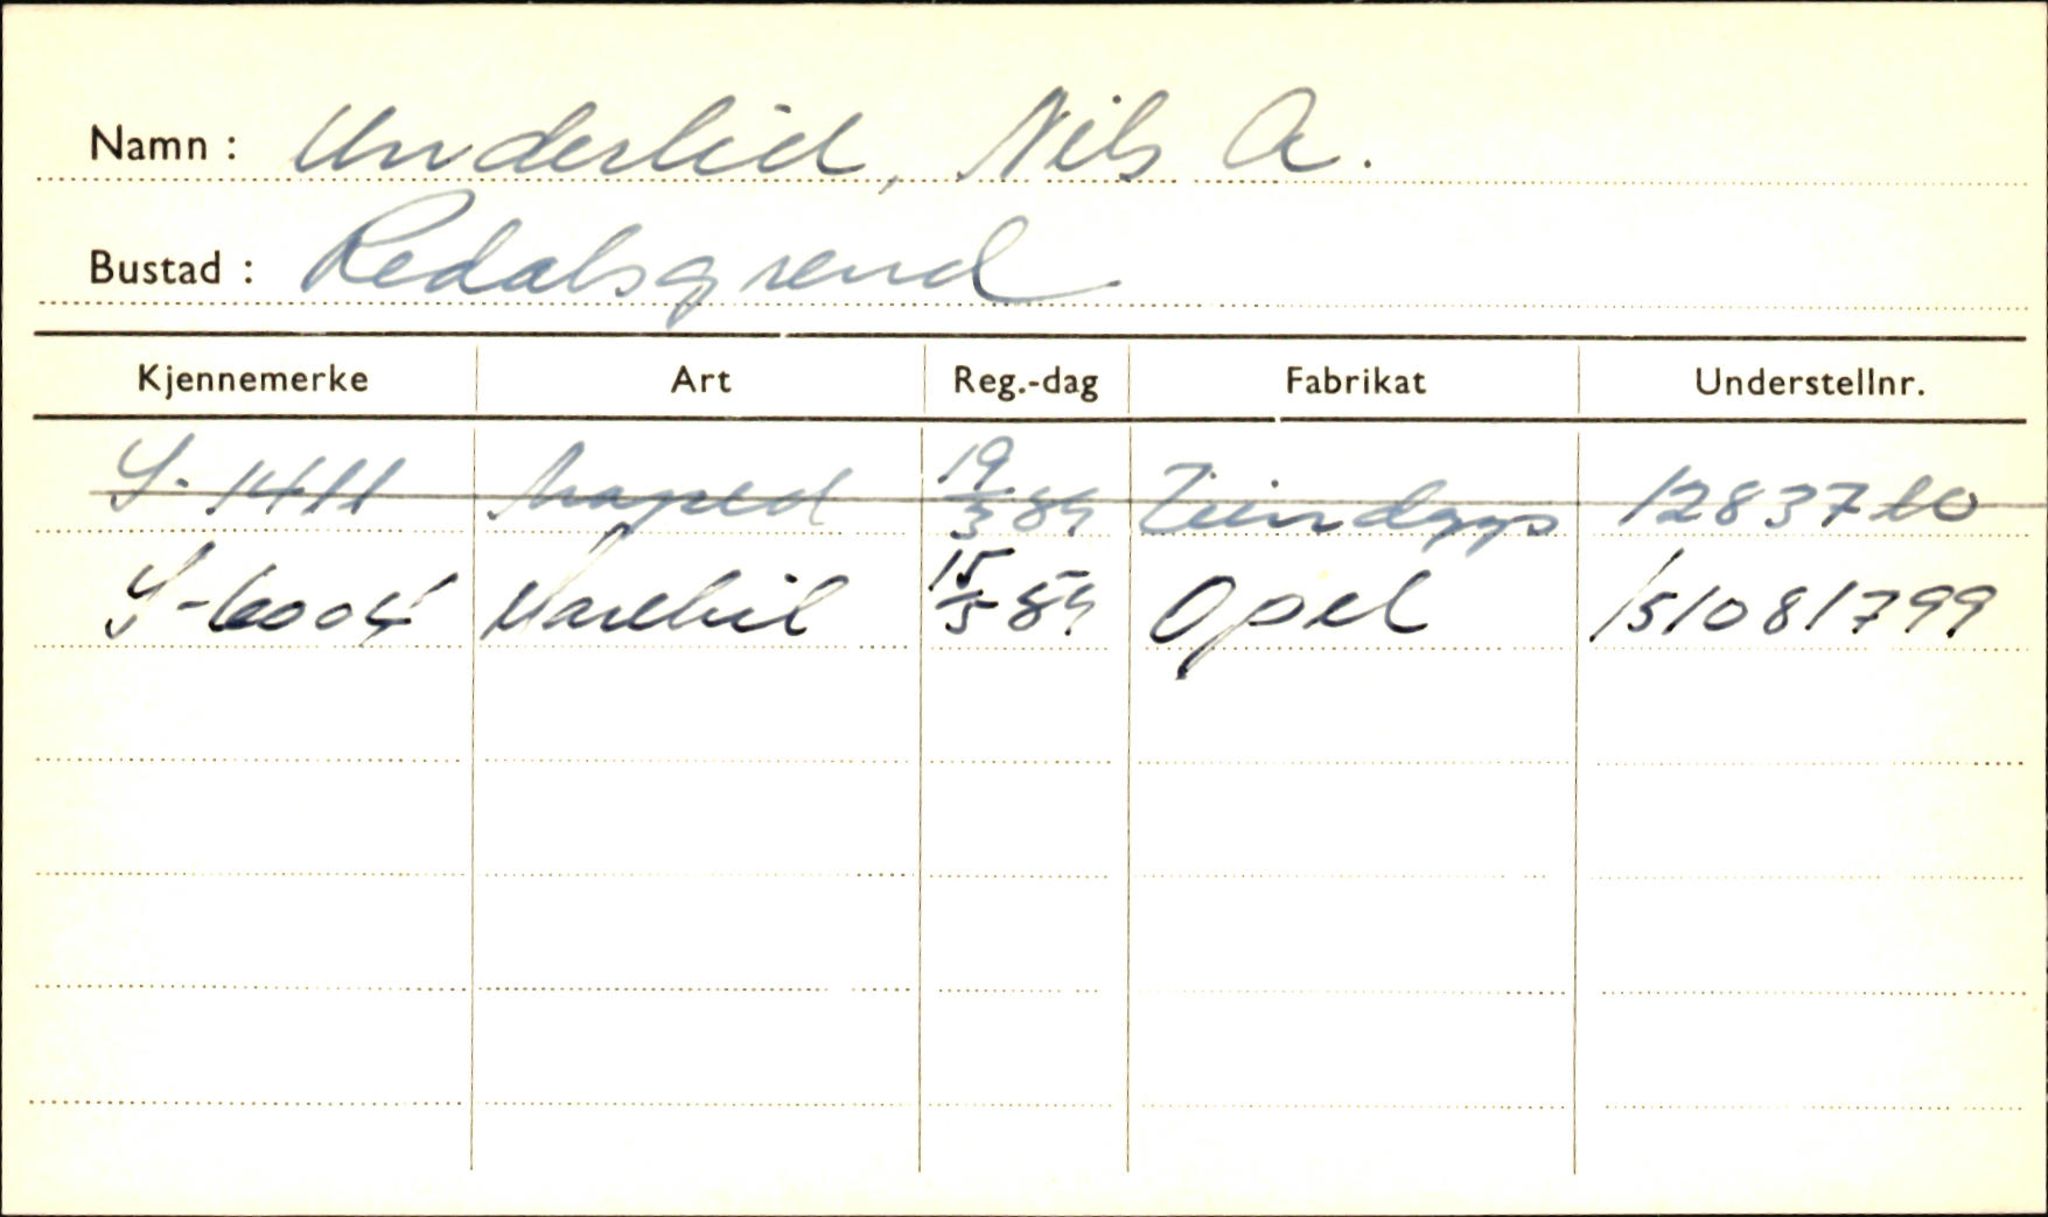 Namn : Underlid, Nils A.
Bustad : Redalsgrend
Kjennemerke Art Reg.-dag Fabrikat Understellnr.
S-1411 Moped 19/3 84 Zündapp
S-6004 Varebil 15/5 84 Opel 151081799